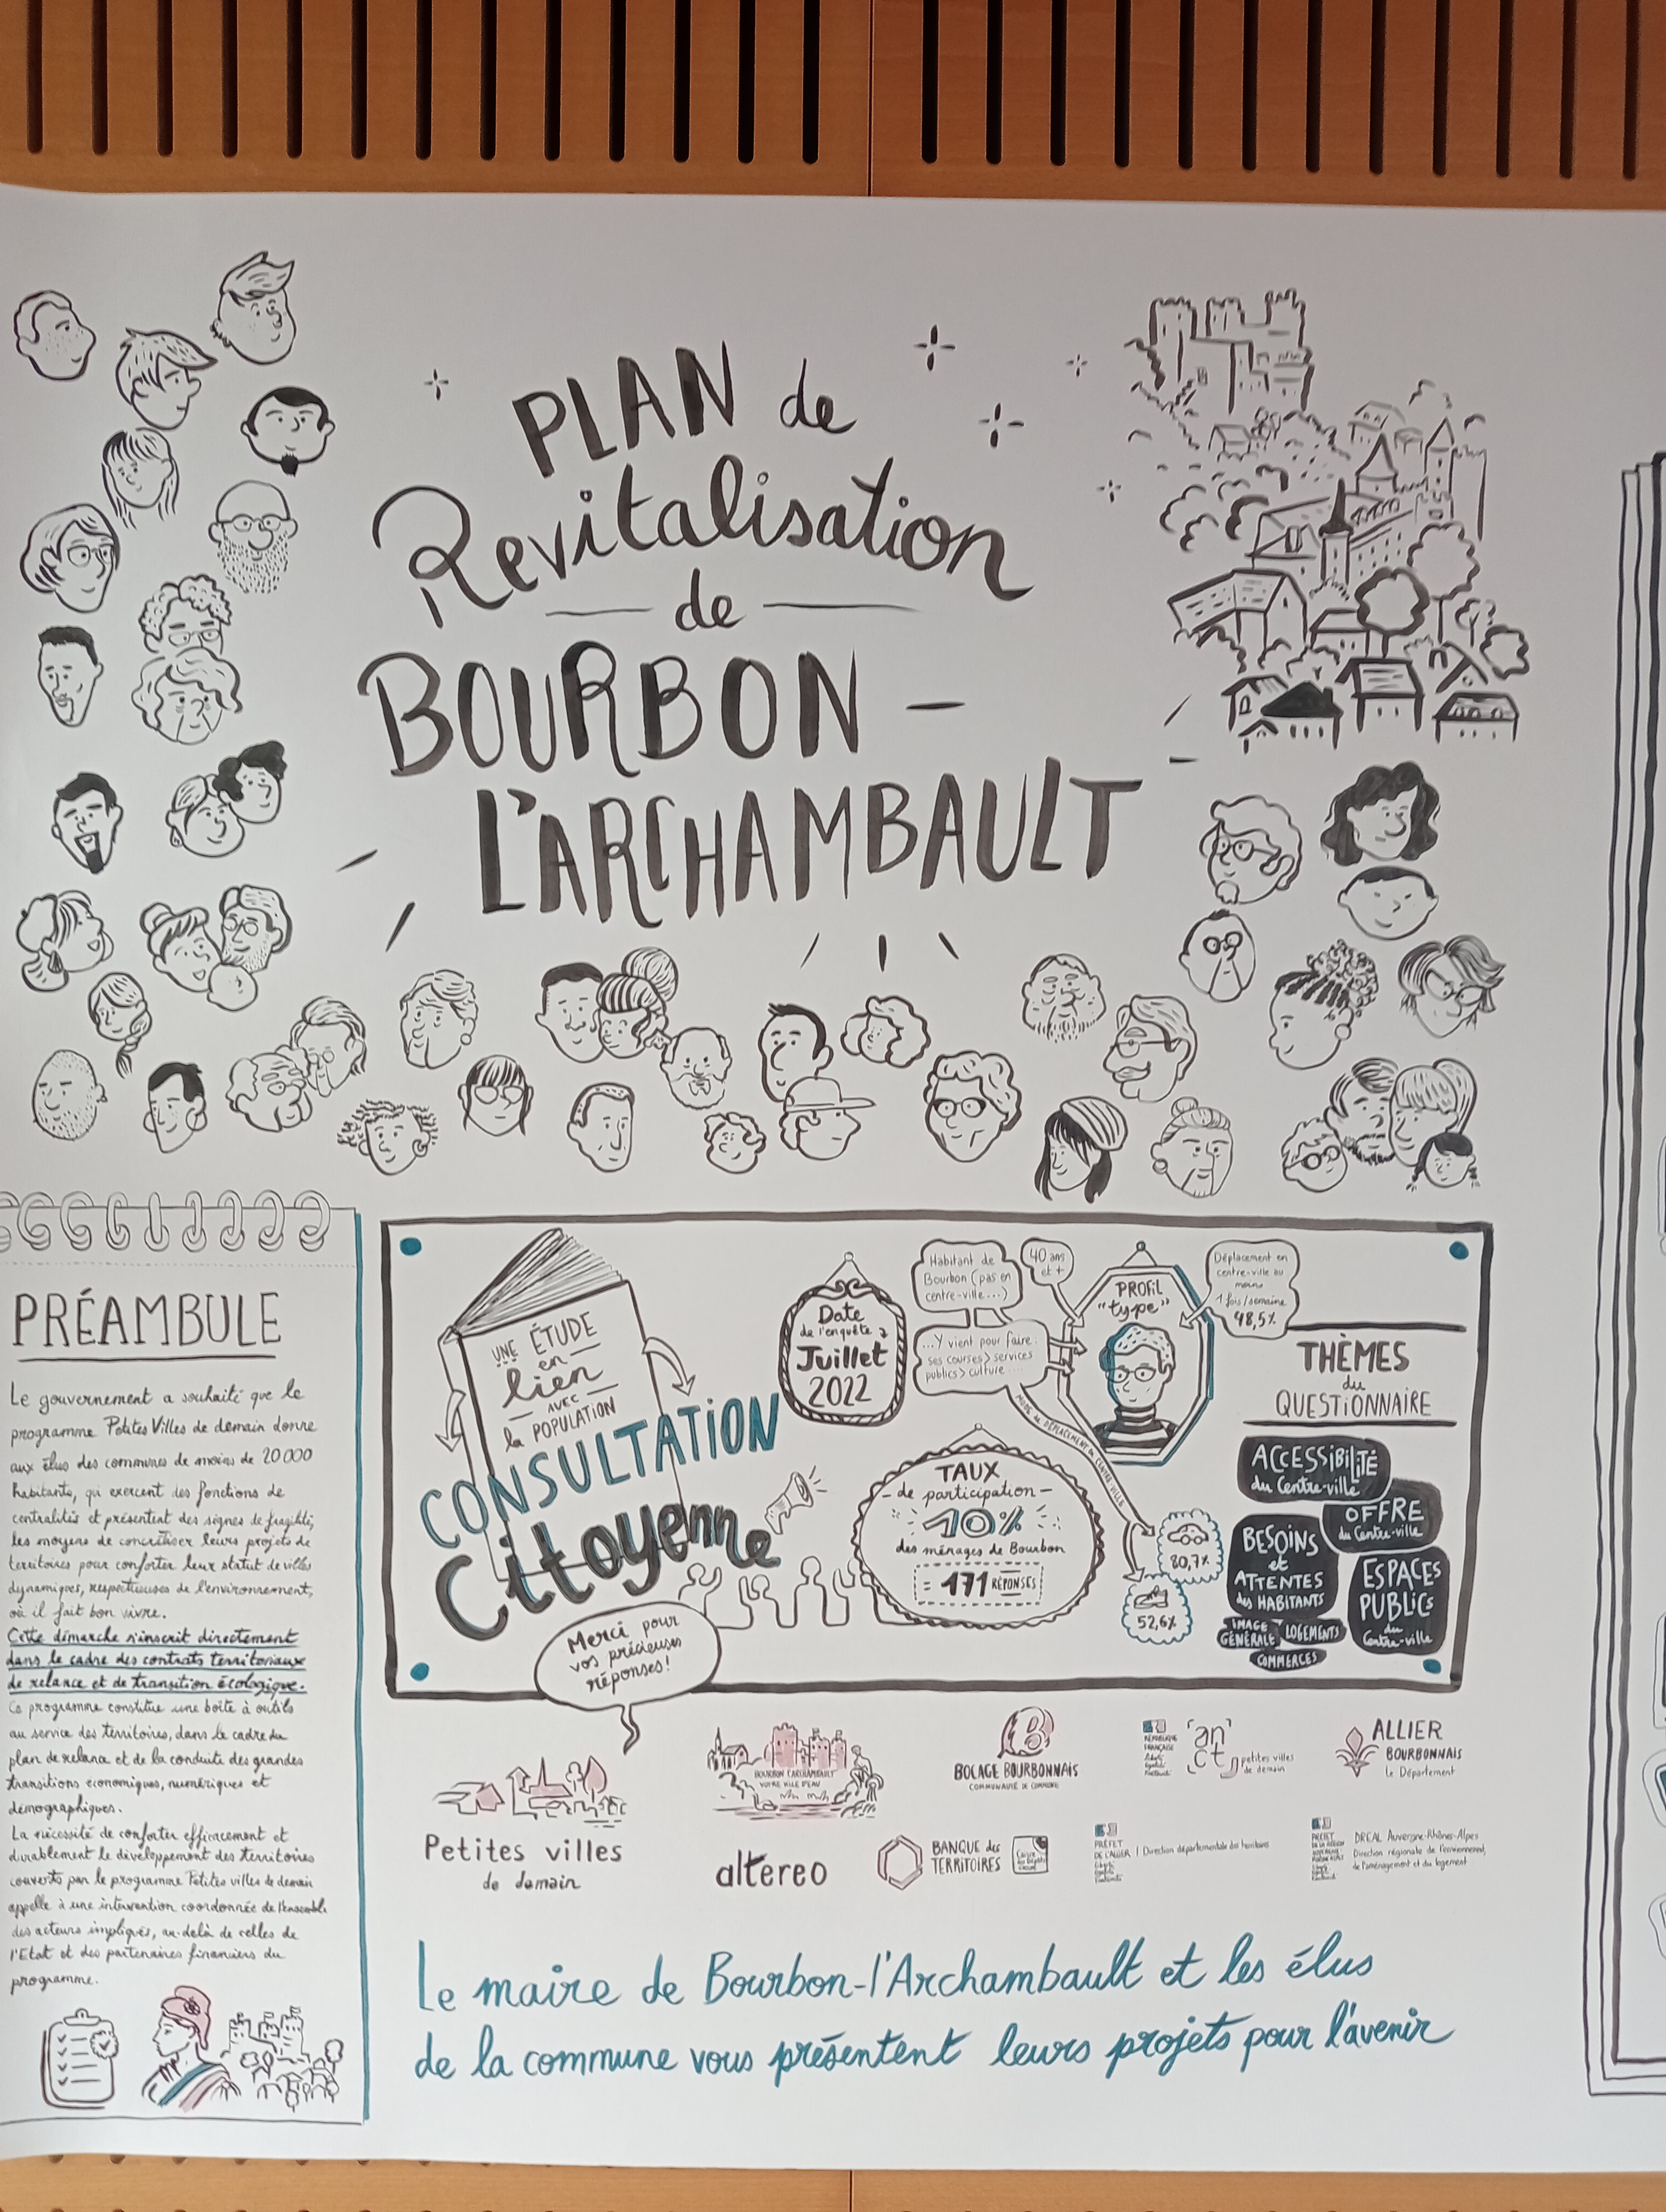 PLAN de
Revitalisation
de
BOURBON -
L'ARCHAMBAULT
PRÉAMBULE
Le gouvernement a souhaité que le
programme Petites Villes de demain donne
aux élus des communes de moins de 20 000
habitants, qui exercent des fonctions de
centralités et présentent des signes de fragilité,
les moyens de concrétiser leurs projets de
territoires pour conforter leur statut de villes
dynamiques, respectueuses de l'environnement,
où il fait bon vivre.
Cette démarche s'inscrit directement
dans le cadre des contrats territoriaux
de relance et de transition écologique.
Ce programme constitue une boîte à outils
au service des territoires, dans le cadre du
plan de relance et de la conduite des grandes
transitions économiques, numériques et
démographiques.
La nécessité de conforter efficacement et
durablement le développement des territoires
couverts par le programme Petites villes de demain
appelle à une intervention coordonnée de l'ensemble
des acteurs impliqués, au-delà de celles de
l'Etat et des partenaires financiers du
programme.
UNE ÉTUDE
en
lien
AVEC
la POPULATION
CONSULTATION
Citoyenne
Merci pour
vos précieuses
réponses!
Date
de l'enquête
Juillet
2022
Habitant de
Bourbon (pas en
centre-ville...)
40 ans
et +
...Y vient pour faire:
ses courses > services
publics > culture ...
PROFIL
"type"
Déplacement en
centre-ville au
moins
1 fois/semaine
48,5%
MODE de DÉPLACEMENT en CENTRE-VILLE
80,7%
52,6%
TAUX
- de participation -
10%
des ménages de Bourbon
= 171 RÉPONSES
THÈMES
du
QUESTIONNAIRE
ACCESSIBILITÉ
du Centre-ville
OFFRE
du Centre-ville
BESOINS
et
ATTENTES
des HABITANTS
ESPACES
PUBLICS
du
Centre-ville
IMAGE
GÉNÉRALE
LOGEMENTS
COMMERCES
Petites villes
de demain
BOURBON L'ARCHAMBAULT
VOTRE VILLE D'EAU
altereo
B
BOCAGE BOURBONNAIS
COMMUNAUTÉ DE COMMUNE
BANQUE des
TERRITOIRES
RÉPUBLIQUE
FRANÇAISE
anct
petites villes
de demain
ALLIER
BOURBONNAIS
Le Département
PRÉFET
DE L'ALLIER
Direction départementale des territoires
DREAL Auvergne-Rhône-Alpes
Direction régionale de l'environnement,
de l'aménagement et du logement
Le maire de Bourbon-l'Archambault et les élus
de la commune vous présentent leurs projets pour l'avenir